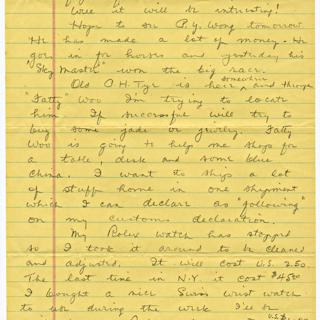 well it will be interesting!
Hope to see P.Y. Wong tomorrow
He has made a lot of money. He
goes in for horses and yesterday his
"Sky Master" won the big race.
somewhere
Old O.H. Tye is here, and through
"Fatty" Woo I'm trying to locate
him. If successful will try to
buy some jade or jewelry. Fatty
Woo is going to help me shop for
a table, desk and some blue
china. I want to ship a lot
of stuff home in one shipment
which I can declare as "following"
on my customs declaration.
My Rolex watch has stopped
so I took it around to be cleaned
and adjusted. It will cost U.S. 2.50.
The last time in N.Y. it cost $45.00
I bought a nice Swiss wrist watch
to use during the week. I'll be
U.S.$